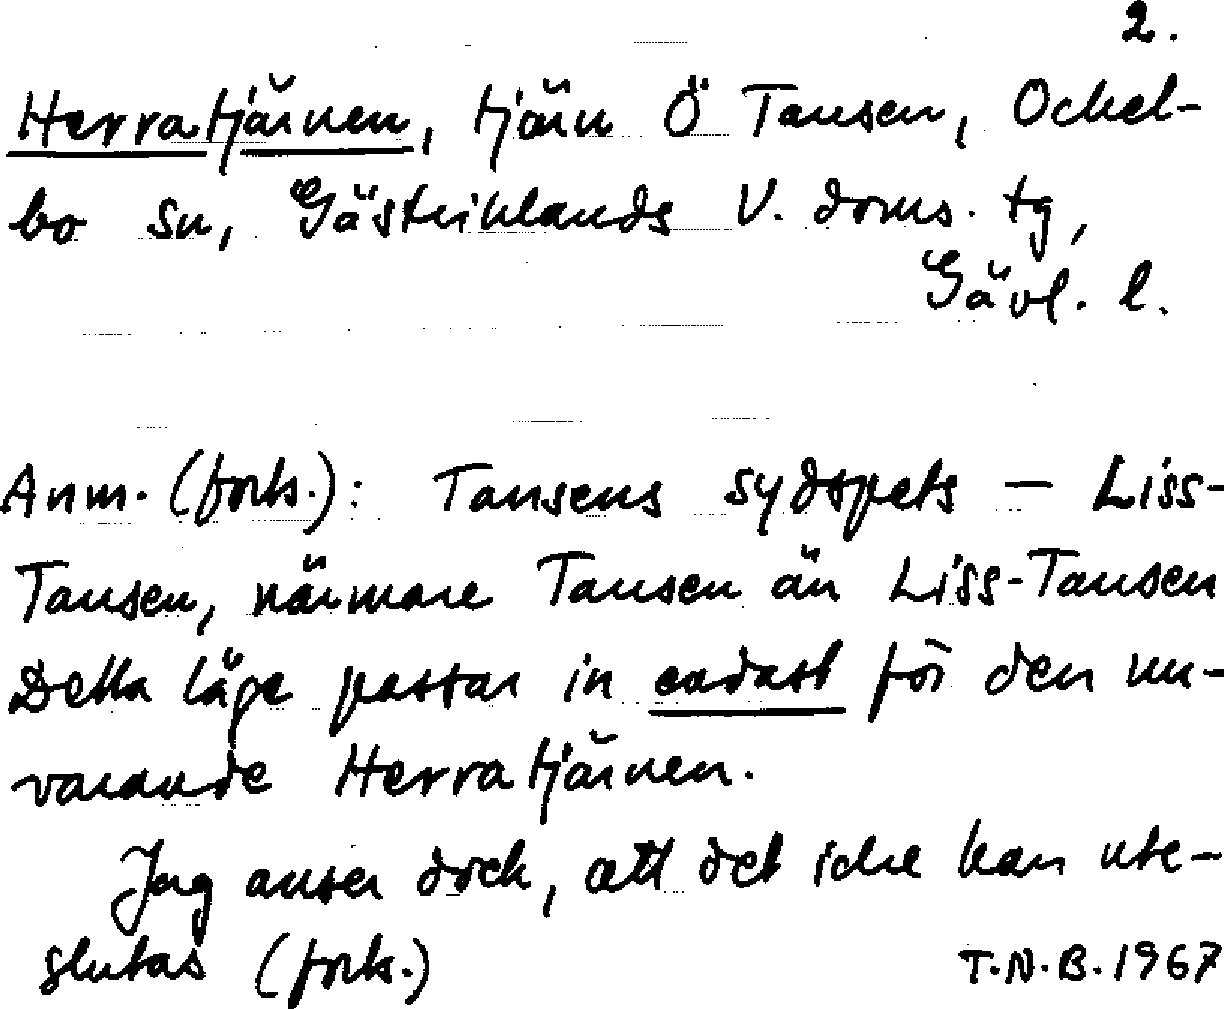 2.
Herratjärnen, tjärn Ö Tansen, Ockel-
bo sn, Gästriklands V. doms. tg,
Gävl. l.
Anm. (forts.): Tansens sydspets – Liss-
Tansen, närmare Tansen än Liss-Tansen
Detta läge passar in endast för den nu-
varande Herratjärnen.
Jag anser dock, att det icke kan ute-
slutas (forts.)
T.N.B. 1967